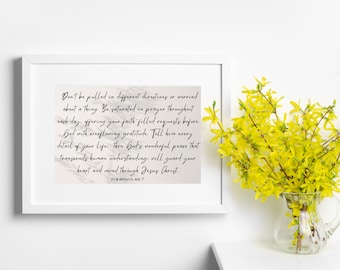 Don't be pulled in different directions or worried
about a thing. Be saturated in prayer throughout
each day, offering your faith filled requests before
God with overflowing gratitude. Tell him every
detail of your life, then God's wonderful peace that
transcends human understanding, will guard your
heart and mind through Jesus Christ